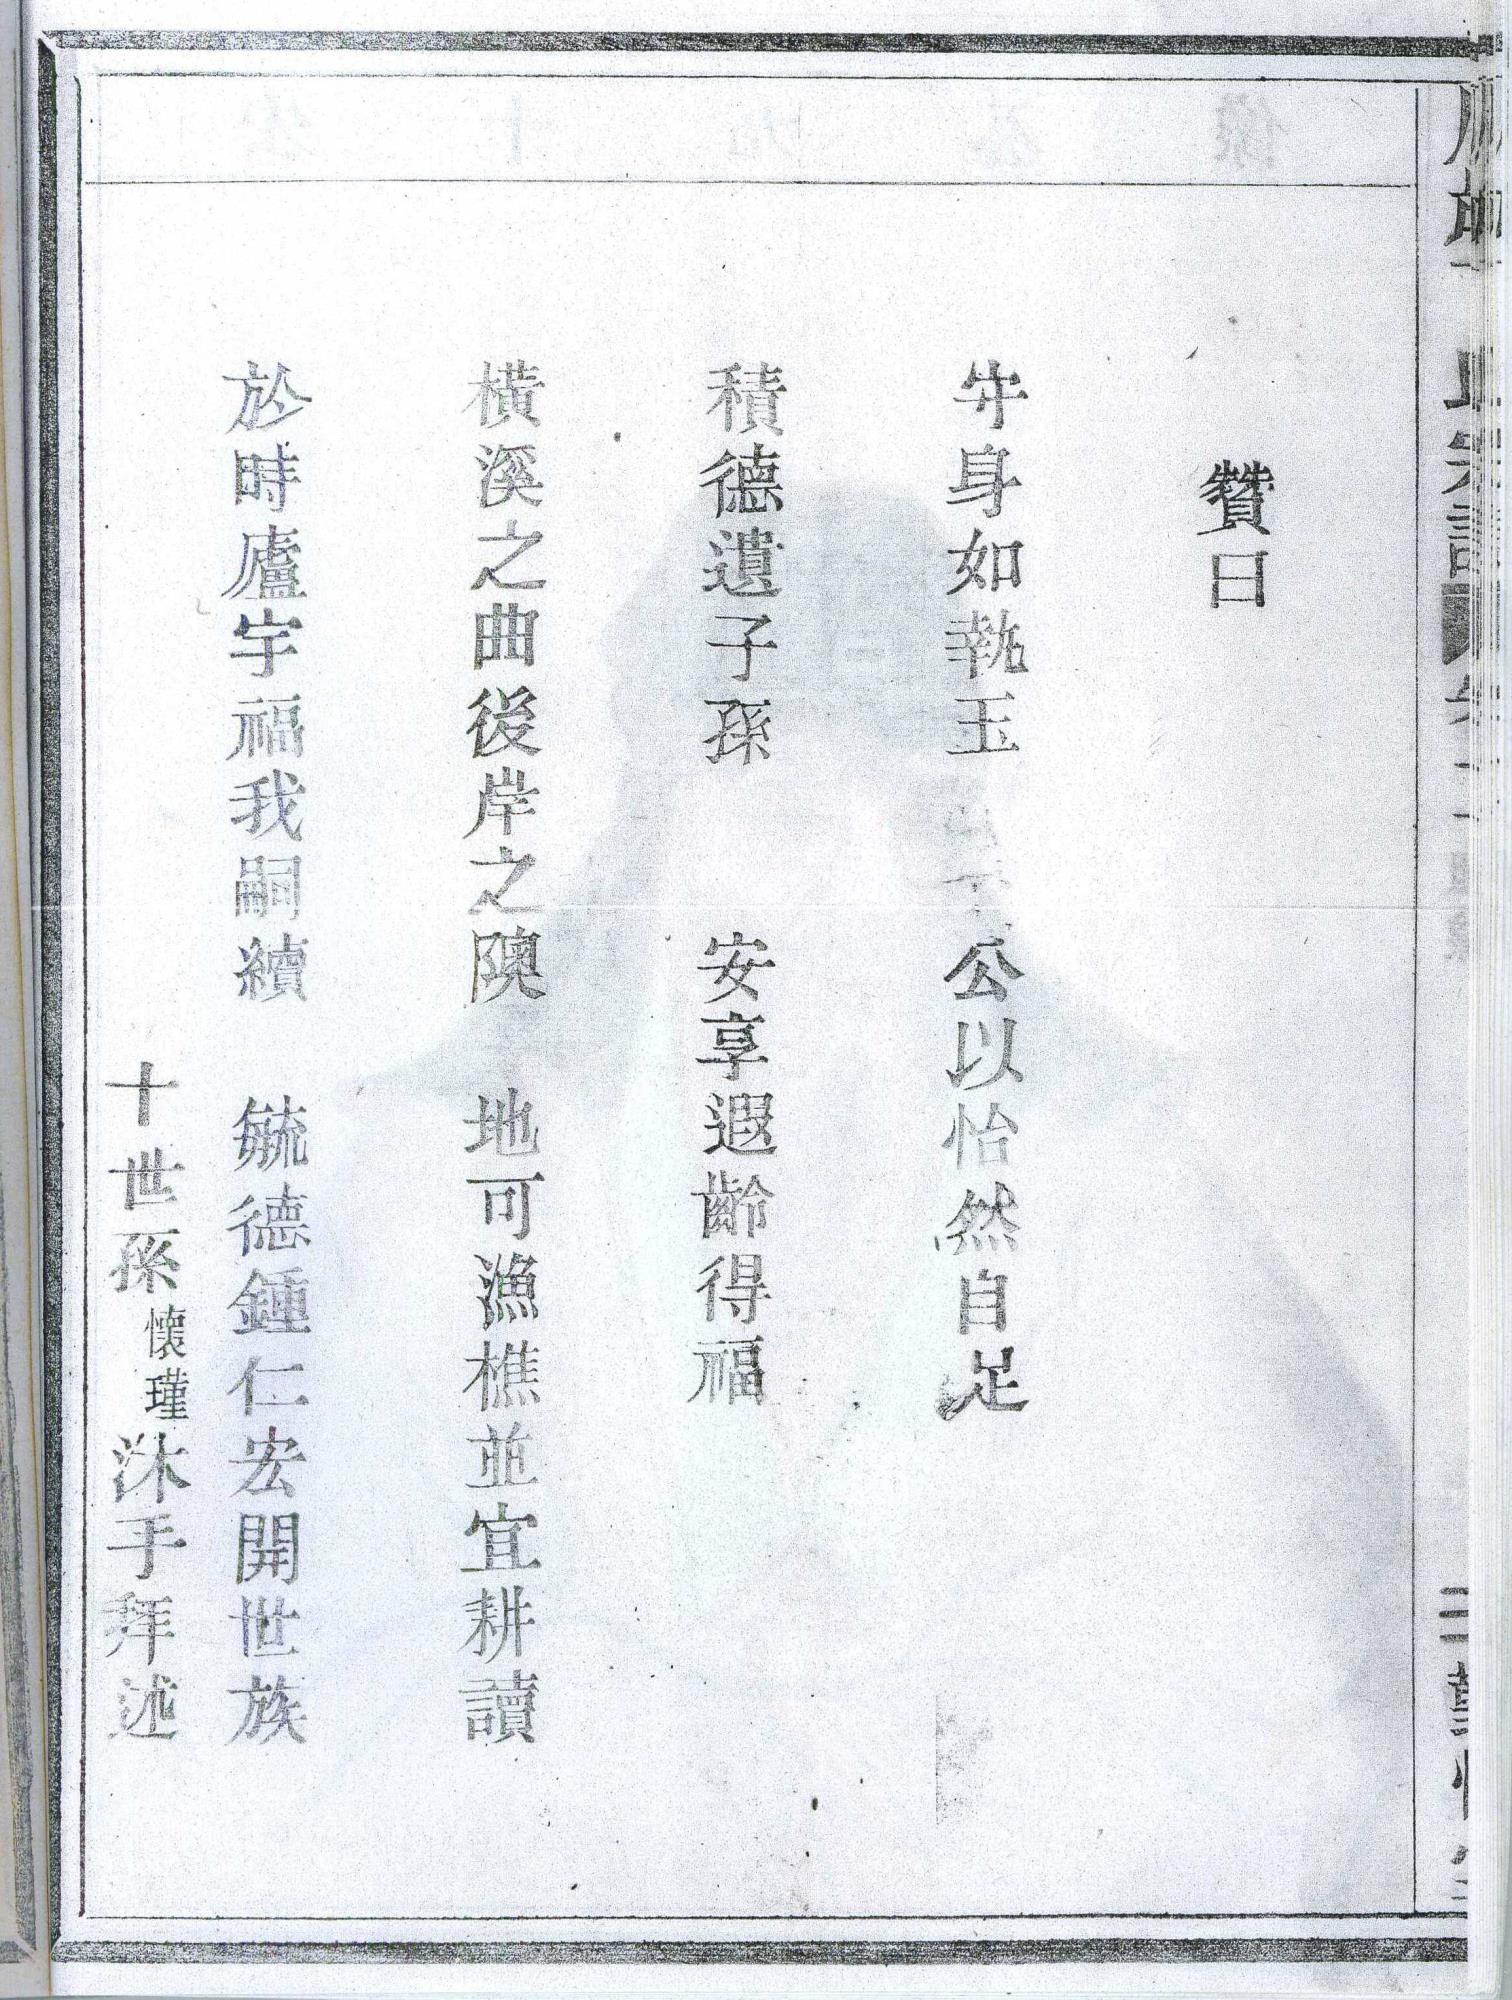 贊曰
守身如執玉 公以怡然自足
積德遺子孫 安享遐齡得福
橫溪之曲後岸之隩 地可漁樵並宜耕讀
於時廬宇福我嗣續 毓德鍾仁宏開世族
十世孫懷瑾沐手拜述